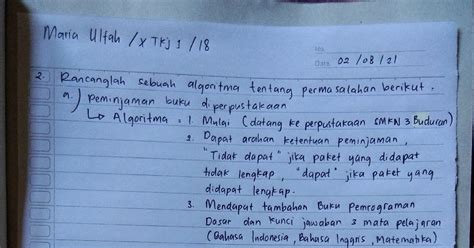 Maria Ulfah / X TKJ 1 / 18
No.
Date 02 / 08 / 21
2. Rancanglah sebuah algoritma tentang permasalahan berikut.
a.) peminjaman buku diperpustakaan
↳ Algoritma = 1. Mulai (datang ke perpustakaan SMKN 3 Buduran)
2. Dapat arahan ketentuan peminjaman,
"Tidak dapat" jika paket yang didapat
tidak lengkap, "dapat" jika paket yang
didapat lengkap.
3. Mendapat tambahan Buku pemrograman
Dasar dan kunci jawaban 3 mata pelajaran
(Bahasa Indonesia, Bahasa Inggris, Matematika)